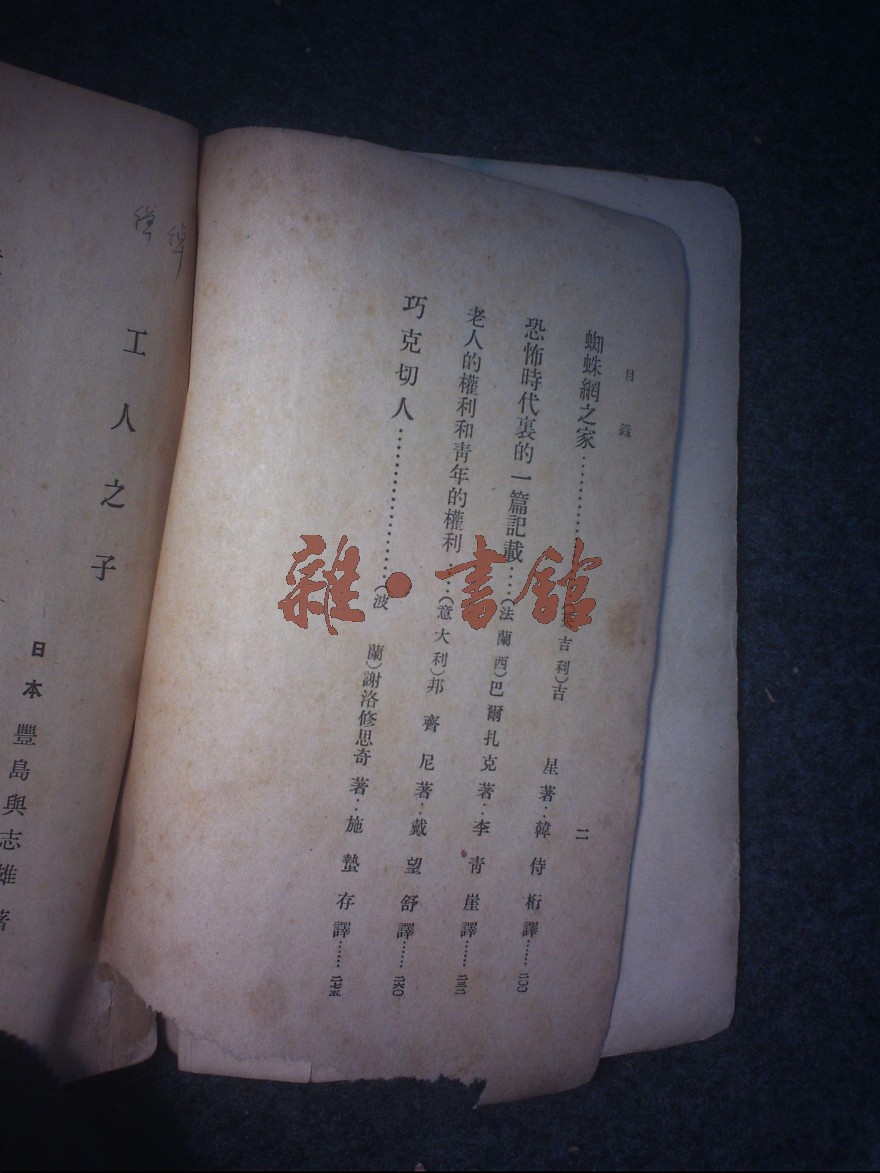 目錄
蜘蛛網之家⋯⋯⋯⋯吉利)吉 星著：韓侍桁譯⋯⋯二〇〇
恐怖時代裏的一篇記載⋯⋯(法蘭西)巴爾扎克著：李青崖譯⋯⋯二三二
老人的權利和青年的權利⋯⋯(意大利)邦齊尼著：戴望舒譯⋯⋯二六〇
巧克切人⋯⋯⋯⋯(波蘭)謝洛修思奇著：施蟄存譯⋯⋯二七五
二
工人之子
日本 豐島與志雄著
雜·書館